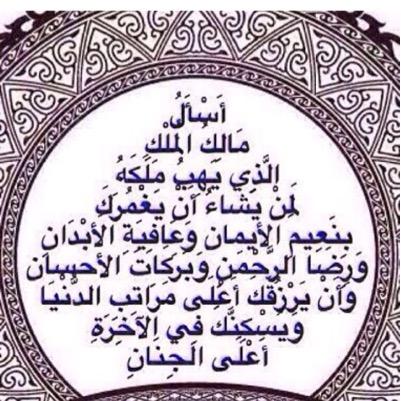 أَسْأَلُ
مَالِكَ الْمُلْكِ
الَّذِي يَهِبُ مُلْكَهُ
لَمِنْ يَشَاءُ أَنْ يَغْمُركَ
بِنَعيمِ الأيمَانِ وَعافِيَةِ الأَبْدَانِ
وَرِضَا الرَّحْمنِ وَبَركَاتِ الأحسَانِ
وَأن يَرْزُقكَ أعْلَى مَرَاتبِ الدُّنْيا
وَيُسْكِنَّكَ فِي الآخِرَةِ
أَعْلَى الجِنَانِ